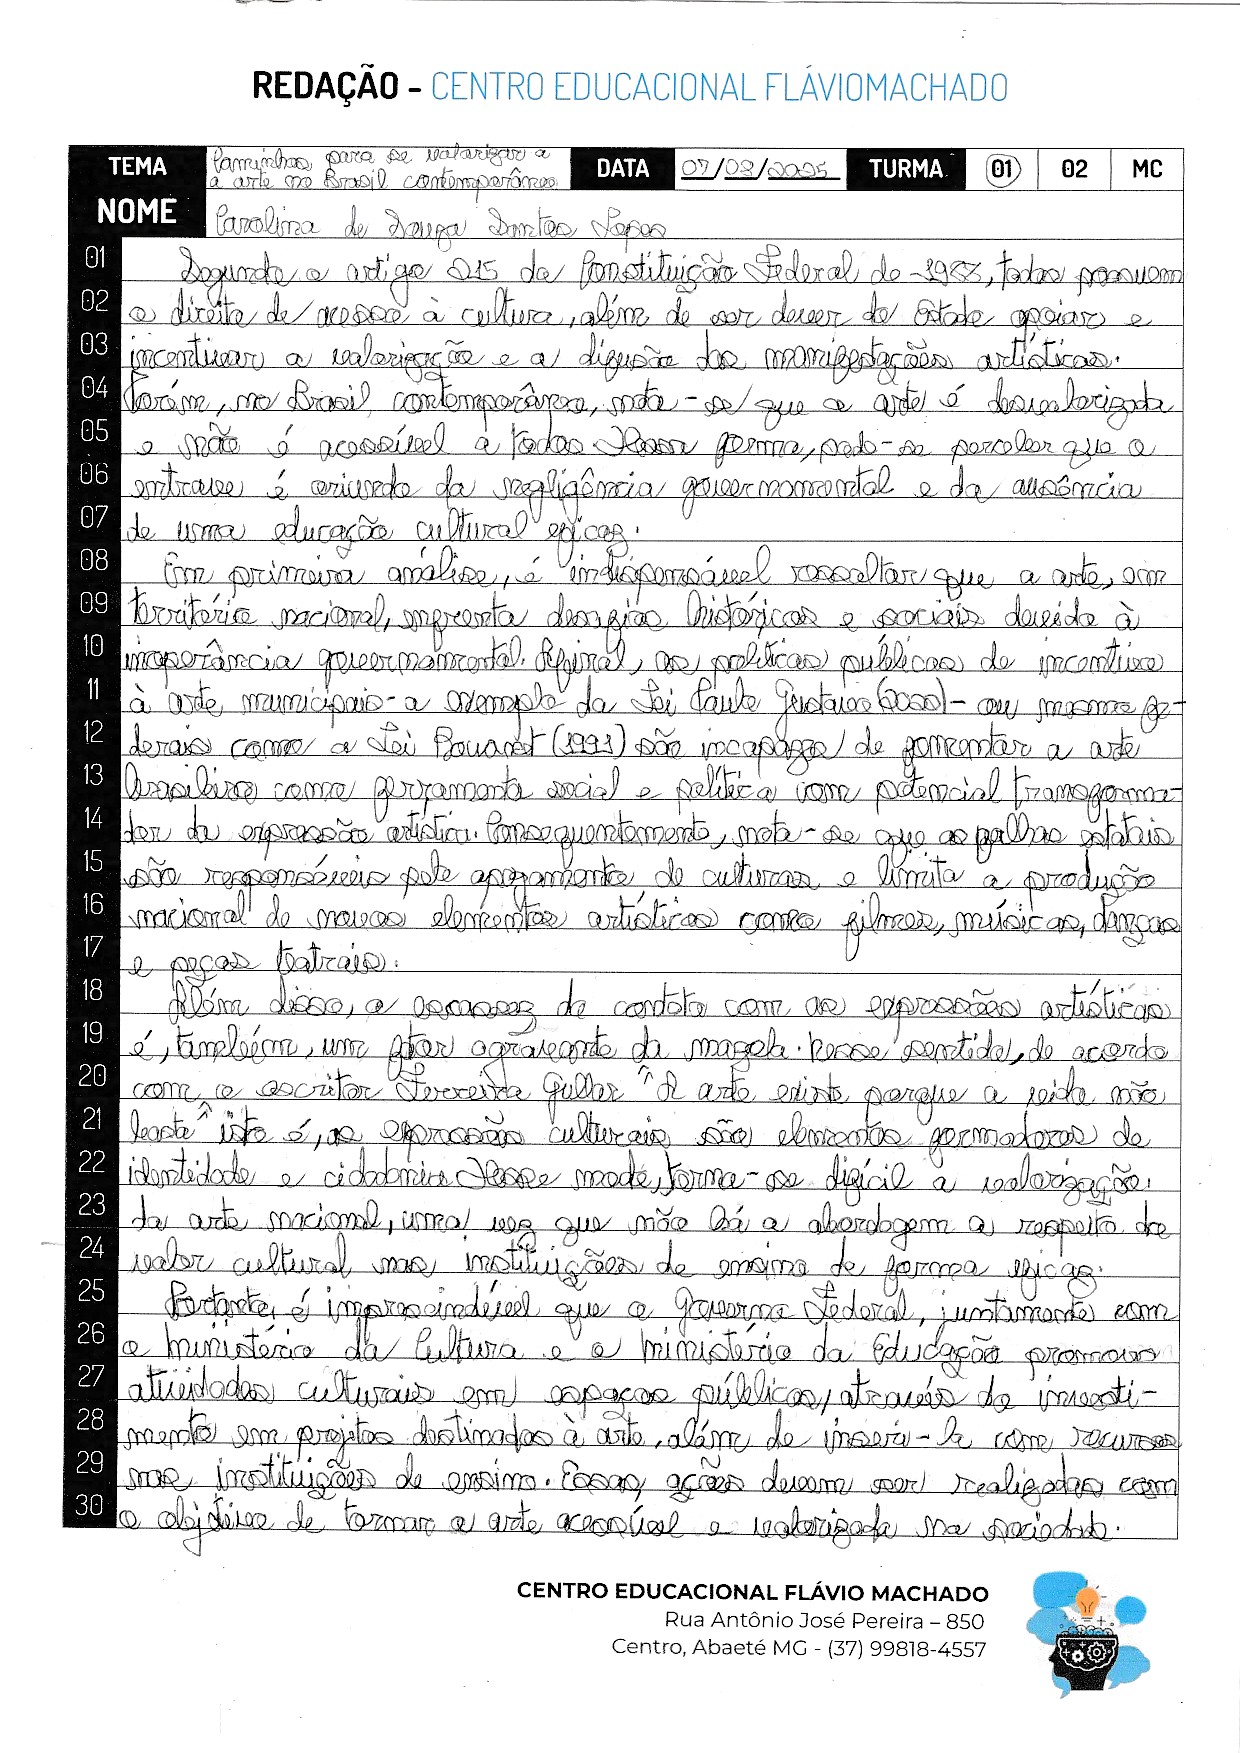 REDAÇÃO - CENTRO EDUCACIONAL FLÁVIOMACHADO
TEMA Caminhos para se valorizar a
a arte no Brasil contemporâneo
DATA 07/08/2025 TURMA 01 02 MC
NOME Carolina de Souza Santos Lopes
01 Segundo o artigo 215 da Constituição Federal de 1988, todos possuem
02 o direito de acesso à cultura, além de ser dever do Estado apoiar e
03 incentivar a valorização e a difusão das manifestações artísticas.
04 Porém, no Brasil contemporâneo, nota-se que a arte é desvalorizada
05 e não é acessível a todos. Dessa forma, pode-se perceber que o
06 entrave é oriundo da negligência governamental e da ausência
07 de uma educação cultural eficaz.
08 Em primeira análise, é indispensável ressaltar que a arte, em
09 território nacional, enfrenta desafios históricos e sociais devido à
10 inoperância governamental. Afinal, as políticas públicas de incentivo
11 à arte municipais - a exemplo da Lei Paulo Gustavo (2020) - ou mesmo fe-
12 derais como a Lei Rouanet (1991) são incapazes de fomentar a arte
13 brasileira como ferramenta social e política com potencial transforma-
14 dor da expressão artística. Consequentemente, nota-se que as falhas estatais
15 são responsáveis pelo apagamento de culturas e limita a produção
16 nacional de novos elementos artísticos como filmes, músicas, danças
17 e peças teatrais.
18 Além disso, a escassez de contato com as expressões artísticas
19 é, também, um fator agravante da mazela. Nesse sentido, de acordo
20 com, o escritor Ferreira Gullar "A arte existe porque a vida não
21 basta" isto é, as expressões culturais são elementos formadores de
22 identidade e cidadania. Desse modo, torna-se difícil a valorização
23 da arte nacional, uma vez que não há a abordagem a respeito do
24 valor cultural nas instituições de ensino de forma eficaz.
25 Portanto, é imprescindível que o Governo Federal, juntamente com
26 o Ministério da Cultura e o Ministério da Educação promova
27 atividades culturais em espaços públicos, através do investi-
28 mento em projetos destinados à arte, além de inseri-la com recursos
29 nas instituições de ensino. Essas ações devem ser realizadas com
30 o objetivo de tornar a arte acessível e valorizada na sociedade.
CENTRO EDUCACIONAL FLÁVIO MACHADO
Rua Antônio José Pereira – 850
Centro, Abaeté MG - (37) 99818-4557